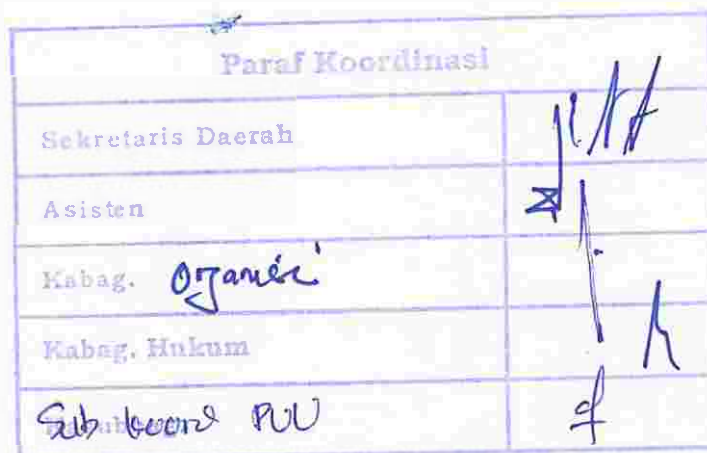 Paraf Koordinasi
Sekretaris Daerah
Asisten
Kabag. Organisasi
Kabag. Hukum
Sub koord PUU